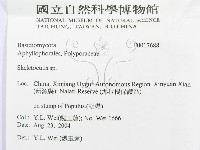 國立自然科學博物館
NATIONAL MUSEUM OF NATURAL SCIENCE
TAICHUNG, TAIWAN, R.O.CHINA
Basidiomycota
Aphyllophorales, Polyporaceae
Skeletocutis sp.
Loc. China, Xinjiang Uygur Autonomous Region, Xinyuan Xian,
Nalati Reserve
on stump of Populus
Coll. Y.L. Wei No. Wei 1666
Date: Aug 23, 2004
Det. Y.L. Wei